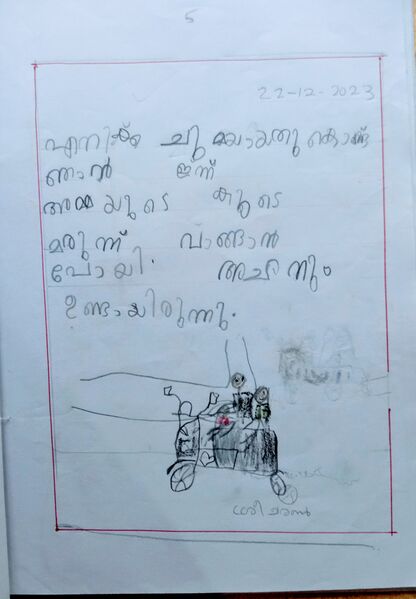 5
22-12-2023
എനിക്ക് ചുമയായതുകൊണ്ട്
ഞാൻ ഇന്ന്
അമ്മയുടെ കൂടെ
മരുന്ന് വാങ്ങാൻ
പോയി. അച്ഛനും
ഉണ്ടായിരുന്നു.